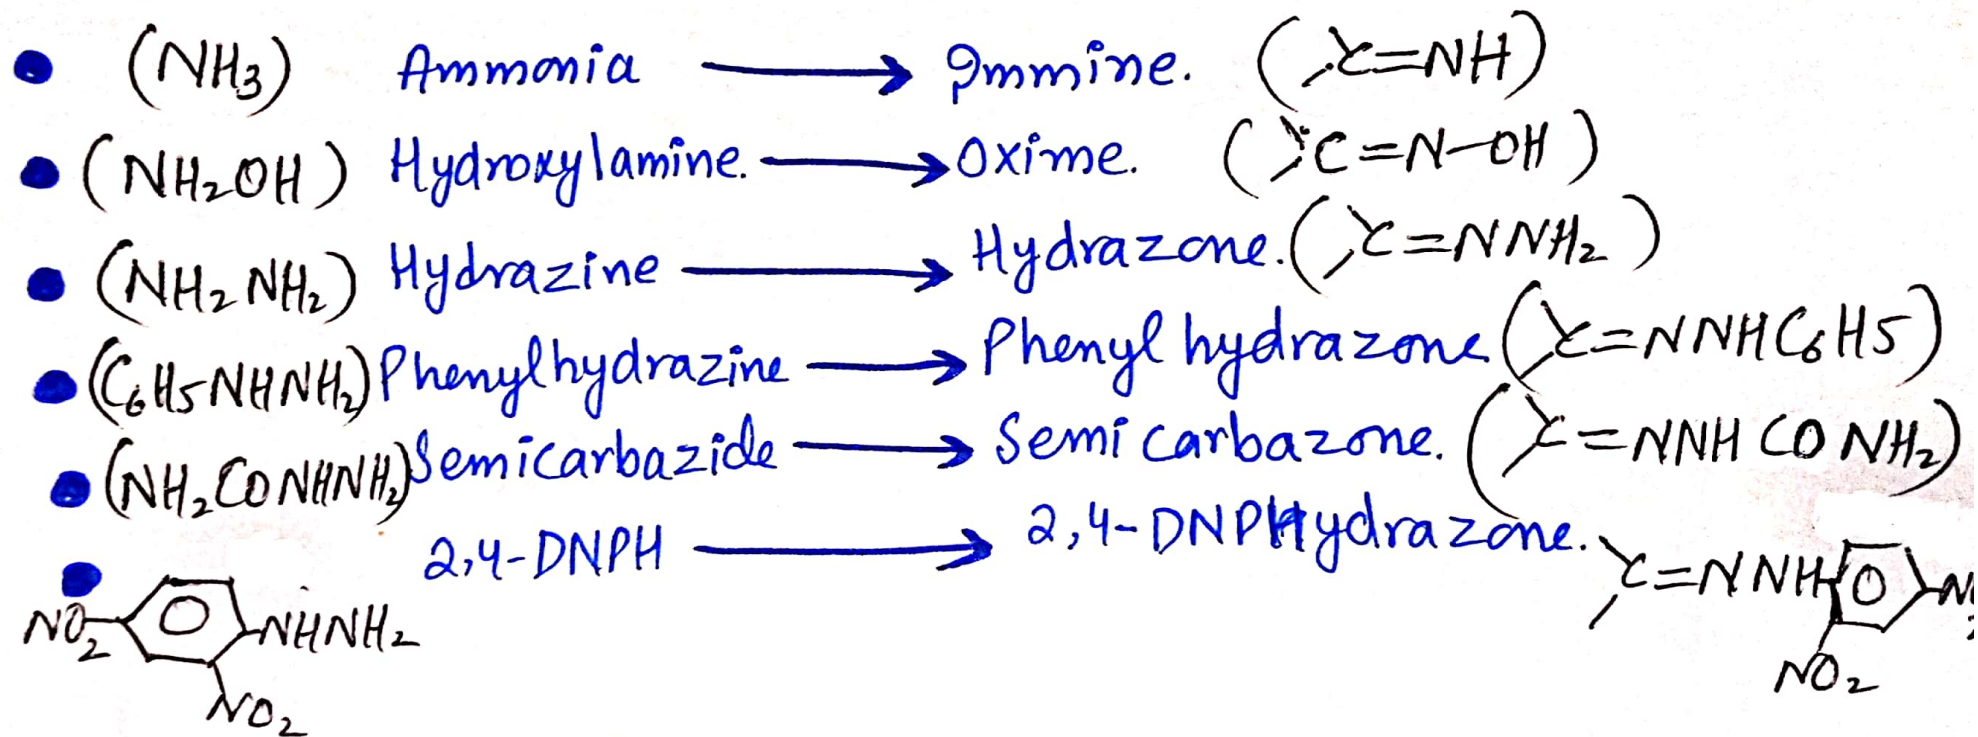 (NH3) Ammonia → Immine. (>C=NH)
(NH2OH) Hydroxylamine. → Oxime. (>C=N-OH)
(NH2NH2) Hydrazine → Hydrazone. (>C=NNH2)
(C6H5NHNH2) Phenylhydrazine → Phenyl hydrazone (>C=NNHC6H5)
(NH2CONHNH2) Semicarbazide → Semi carbazone. (>C=NNHCONH2)
2,4-DNPH → 2,4-DNPHydrazone. >C=NNH
NO2 NHNH2
NO2
NO2